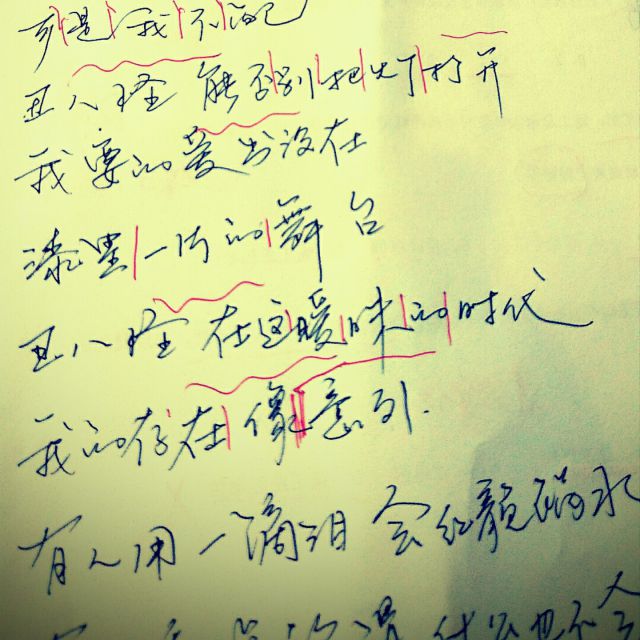 可是我不配
丑八怪 能否别把灯打开
我要的爱 出没在
漆黑一片的舞台
丑八怪 在这暧昧的时代
我的存在 像意外
有人用一滴泪 会红颜祸水